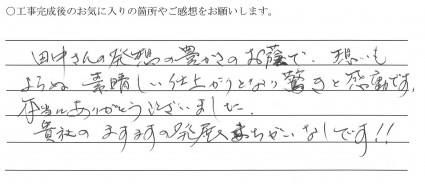 ○工事完成後のお気に入りの箇所やご感想をお願いします。
田中さんの発想の豊かさのお蔭で、想いも
よらぬ素晴しい仕上がりとなり驚きと感動です。
本当にありがとうございました。
貴社のますますの発展まちがいなしです!!